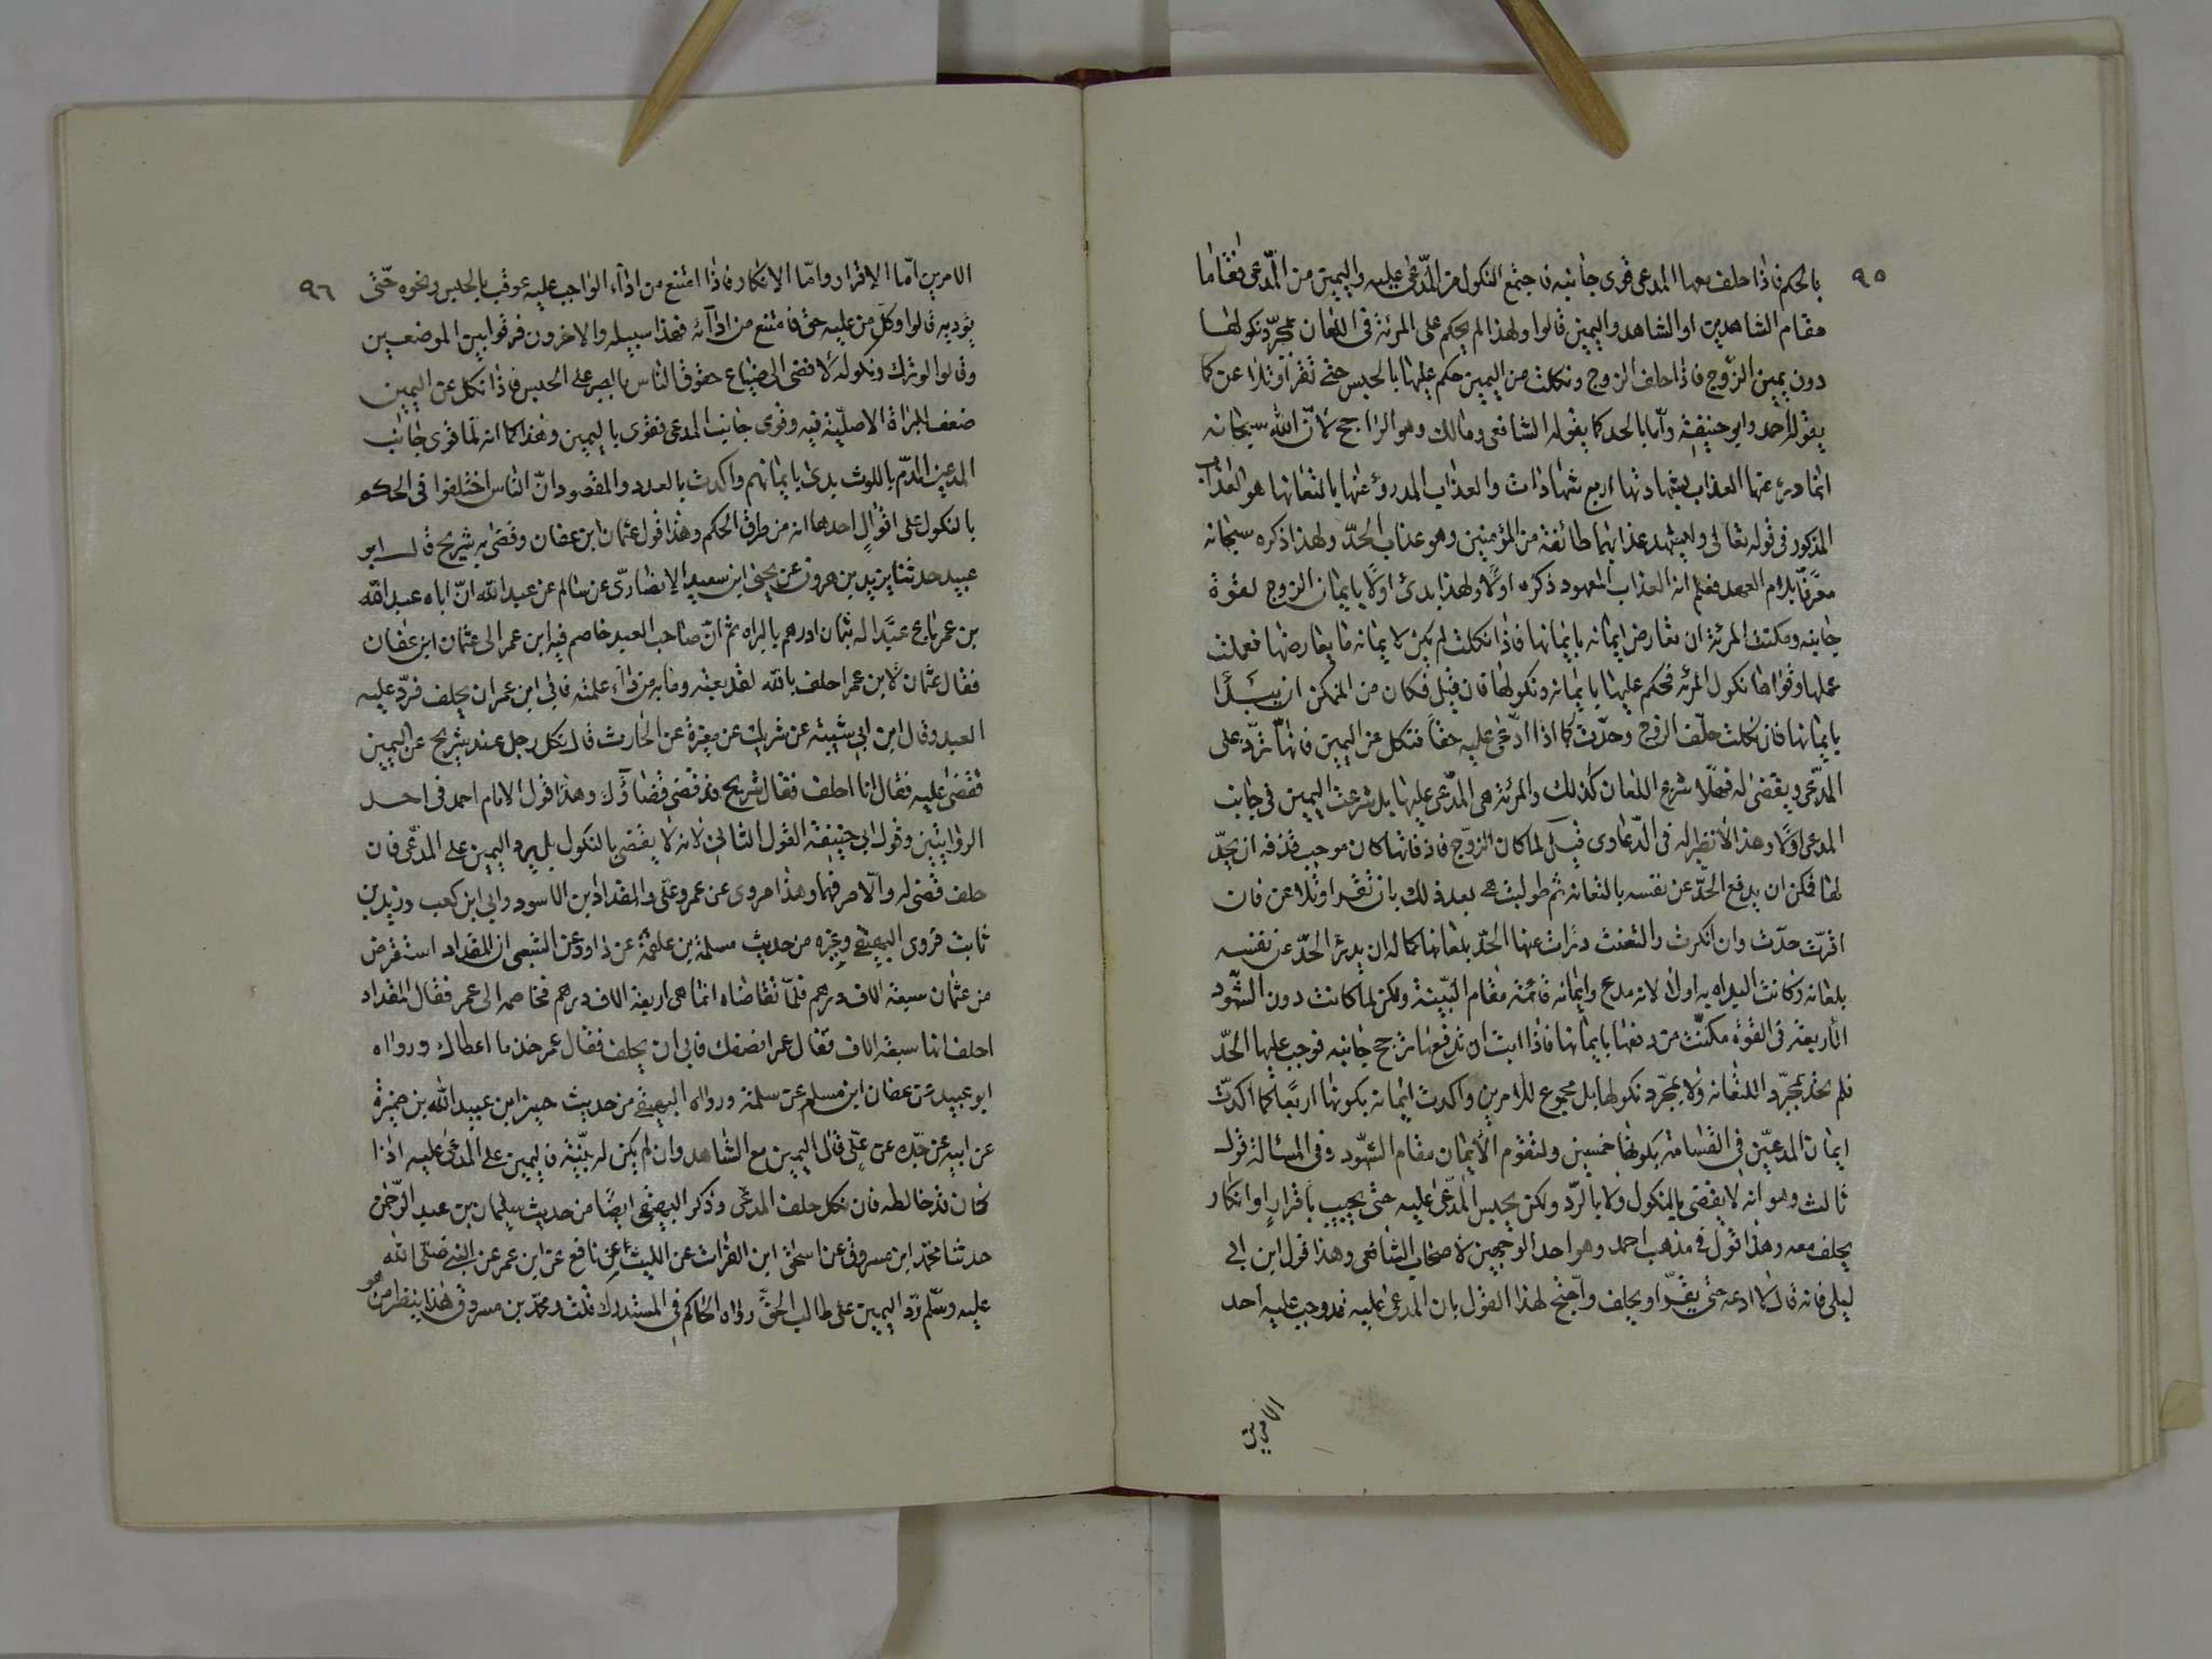 ٩٥
بالحكم فاذا حلف معها المدعى قوى جانبه فاجتمع النكول من المدّعى عليه واليمين من المدّعى فقاما
مقام الشاهدين او الشاهد واليمين قالوا ولهذا لم يحكم على المرئة فى اللعان بمجرّد نكولها
دون يمين الزّوج فاذا حلف الزوج ونكلت من اليمين حكم عليها بالحبس حتى تقرّ او تلاعن كما
يقوله احمد وابو حنيفة وامّا بالحد كما يقوله الشافعى ومالك وهو الراجح لانّ الله سبحانه
انما درئ عنها العذاب بشهادتها اربع شهادات والعذاب المدروء عنها بالتعانها هو العذاب
المذكور فى قوله تعالى وليشهد عذابهما طائفة من المؤمنين وهو عذاب الحدّ ولهذا ذكره سبحانه
معرّفًا بلام العهد فعلم انه العذاب المعهود ذكره اولًا ولهذا بدئ اولًا بايمان الزوج لقوة
جانبه ومكنت المرئة ان تعارض ايمانه بايمانها فاذا نكلت لم يكن لايمانه ما يعارضها فعملت
عملها وقواها نكول المرئه فحكم عليها بايمانه ونكولها فان قيل فكان من الممكن ان يبدا
بايمانها فان نكلت حلّف الزوج وحدّت كما اذا ادّعى عليه حقاً فنكل عن اليمين فانها تردّ على
المدّعى ويقضى له فهلّا شرع اللعان كذلك والمرئة هى المدّعى عليها بل شرعت اليمين فى جانب
المدعى اولًا وهذا لا نظير له فى الدّعاوى قيل لما كان الزوّج قاذفا لها كان موجب قذفه ان يحدّ
لها فمكن ان يدفع الحدّ عن نفسه بالتعانه ثم طولبت هى بعد ذلك بان تقر او تلاعن فان
اقرّت حدّت وان انكرت والتعنت درات عنها الحدّ بلعانها كما له ان يدرئ الحدّ عن نفسه
بلعانه وكانت البداءه به اولى لانه مدع وايمانه قائمة مقام البيّنة ولكن لما كانت دون الشّهود
الأربعة فى القوّة مكنّت من دفعها بايمانها فاذا ابت ان تدفعها ترجح جانبه فوجب عليها الحدّ
فلم تحد بمجرّد التعانه ولا بمجرّد نكولها بل بمجموع الامرين واكدت ايمانه بكونها اربعًا كما اكدّت
ايمان المدعيّن فى القسامة بكونها خمسين ولتقوم الأيمان مقام الشّهود وفى المسئالة قول
ثالث وهو انه لا يقضى بالنكول ولا بالرّد ولكن يحبس المدّعى عليه حتى يجيب باقرارٍ او انكار
يحلف معه وهذا قول فى مذهب احمد وهو احد الوجهين لاصحاب الشافعى وهذا قول ابن ابى
ليلى فانه قال لا ادعه حتى يقرّ او يحلف واحتج لهذا القول بان المدعى عليه قد وجب عليه احد
الامرين
٩٦
الامرين امّا الاقرار وامّا الانكار فاذا امتنع من اداء الواجب عليه عوقب بالحبس ونحوه حتّى
يؤديه قالوا وكل من عليه حق فامتنع من ادائه فهذا سبيله والاخرون فرقوا بين الموضعين
وقالوا لو ترك ونكوله لافضى الى ضياع حقوق الناس بالصبر على الحبس فاذا نكل عن اليمين
ضعف البراة الاصليّة فيه وقوى جانب المدعى فقوى باليمين وهذا كما انه لما قوى جانب
المدعين الدّم باللوث بدئ بايمانهم واكدت بالعدد والمقصود انّ الناس اختلفوا فى الحكم
بالنكول على اقوالٍ احدها انه من طرق الحكم وهذا قول عثمان بن عفان وقضى به شريح قال ابو
عبيد حدثنا يزيد بن هرون عن يحيى ابن سعيد الانصارىّ عن سالم عن عبد الله انّ اباه عبد الله
بن عمر باع عبدًا له بثمان ادرهم بالبراه ثم انّ صاحب العبد خاصم فيه ابن عمر الى عثمان ابن عفان
فقال عثمان لابن عمر احلف بالله لقد بعته وما به من داء علمته فابى ابن عمر ان يحلف فردّ عليه
العبد وقال ابن ابى شيبه عن شريك عن مغيرة عن الحارث قال نكل رجل عند شريح عن اليمين
فقضى عليه فقال انا احلف فقال شريح قد قضى قضاؤك وهذا قول الامام احمد فى احد
الروايتين وقول ابى حنيفة القول الثانى لانه لا يقضى بالنكول بل يرد اليمين على المدّعى فان
حلف قضى له والّا صرفهما وهذا مروى عن عمر وعلى والمقداد بن الاسود وابى ابن كعب وزيد بن
ثابت فروى البيهقى وغيره من حديث مسلمة بن علقمة عن داود عن الشعبى ان المقداد استقرض
من عثمان سبعة الاف درهم فلمّا تقاضاه انما هى اربعة الاف درهم فخاصمه الى عمر فقال المقداد
احلف انها سبعة الاف فقال عمر انصفك فابى ان يحلف فقال عمر خذ ما اعطاك ورواه
ابو عبيد عن عفان ابن مسلم عن سلمة ورواه البيهقى من حديث حسين ابن عبيد الله بن ضميرة
عن ابيه عن جدّه عن علىّ قال اليمين مع الشاهد وان لم يكن له بيّنة فاليمين على المدعى عليه اذا
كان قد خالطه فان نكل حلف المدعى وذكر البيهقى ايضًا من حديث سليمان بن عبد الرّحمن
حدثنا محمد ابن مسروق عن اسحق ابن الفرات عن الليث عن نافع عن ابن عمر عن النبى صلّى الله
عليه وسلّم ردّ اليمين على طالب الحقّ رواه الحاكم فى المستدرك قلت ومحمّد بن مسروق هذا ينظر من هو